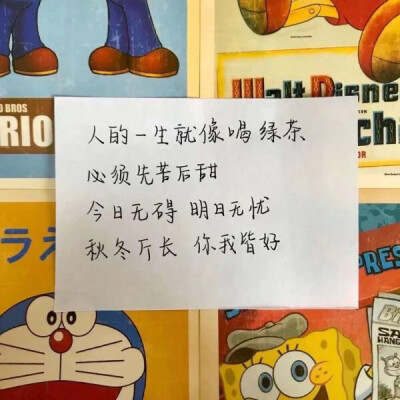 BROS
RIO
Walt Disne
chi
OR
人的一生就像喝绿茶
必须先苦后甜
今日无碍 明日无忧
秋冬斤长 你我皆好
ラえ
PRES
SA
HANG